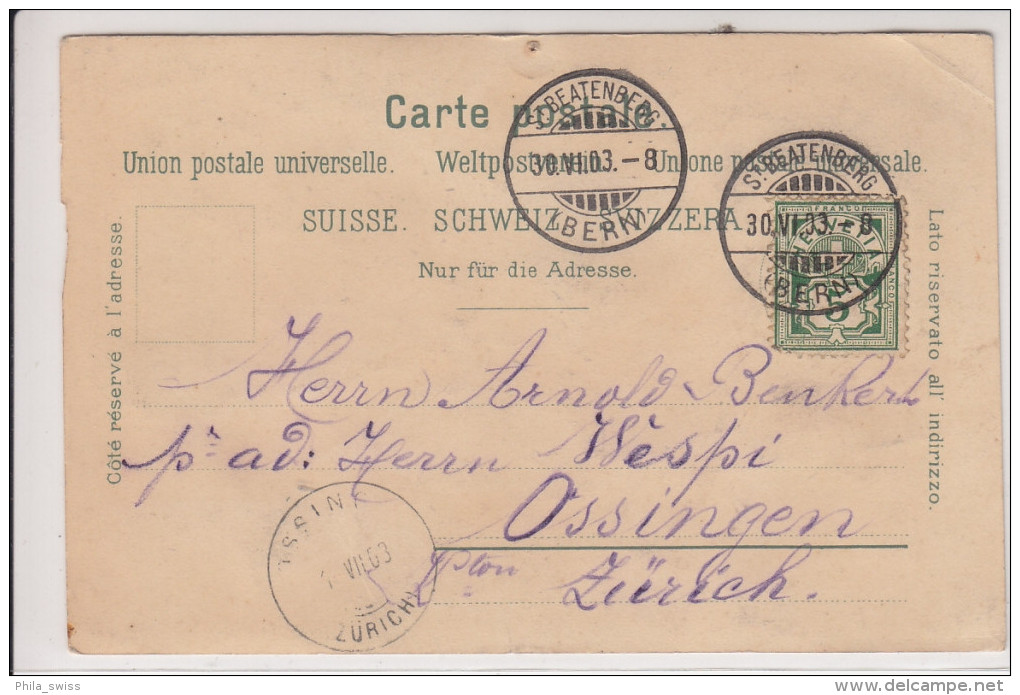 Carte postale
Union postale universelle. Weltpostverein. Unione postale universale.
SUISSE. SCHWEIZ. SVIZZERA.
Nur für die Adresse.
Côté réservé à l'adresse.
Lato riservato all' indirizzo.
ST BEATENBERG
30.VI.03.–8
(BERN)
ST BEATENBERG
30.VI.03.–8
(BERN)
FRANCO
HELVETIA
FRANCO
5
Herrn Arnold Benkert
pr ad: Herrn Wèspi
Ossingen
Zürich.
OSSIN
1. VII.03
ZÜRICH)
Phila_swiss
delcampe.net